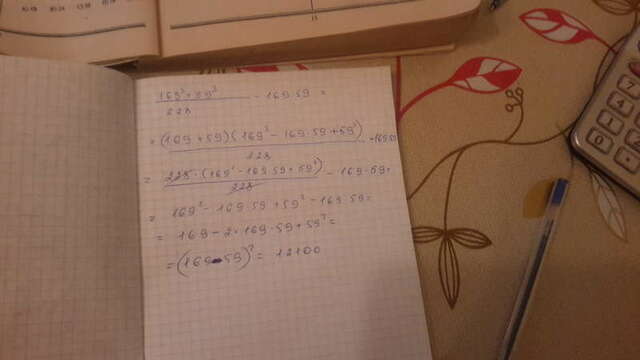 169³ + 59³ / 228 - 169·59 =
= (169 + 59)(169² - 169·59 + 59²) / 228 - 169·59
= 228·(169² - 169·59 + 59²) / 228 - 169·59 =
= 169² - 169·59 + 59² - 169·59 =
= 169 - 2·169·59 + 59² =
= (169 - 59)² = 12100